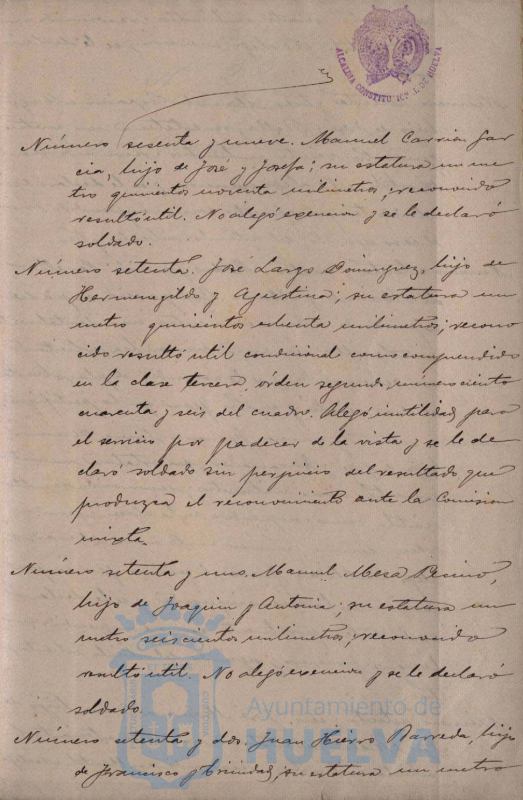 ALCALDIA CONSTITUCIONAL DE HUELVA
Número sesenta y nueve. Manuel Carrion Gar
cia, hijo de José y Josefa; su estatura un me
tro quinientos noventa milimetros; reconocido
resultó útil. No alegó exencion y se le declaró
soldado.
Número setenta. José Largo Dominguez, hijo de
Hermenegildo y Agustina; su estatura un
metro quinientos ochenta milimetros; recono
cido resultó útil condicional como comprendido
en la clase tercera, órden segundo, número ciento
cuarenta y seis del cuadro. Alegó inutilidad para
el servicio por padecer de la vista y se le de
claró soldado sin perjuicio del resultado que
produzca el reconocimiento ante la Comision
mixta.
Número setenta y uno. Manuel Mesa
hijo de Joaquin y Antonia; su estatura un
metro seiscientos milimetros; reconocido
resultó útil. No alegó exencion y se le declaró
soldado.
Número setenta y dos. Juan Hierro Barreda, hijo
de Francisco y Trinidad; su estatura un metro
Ayuntamiento de
HUELVA